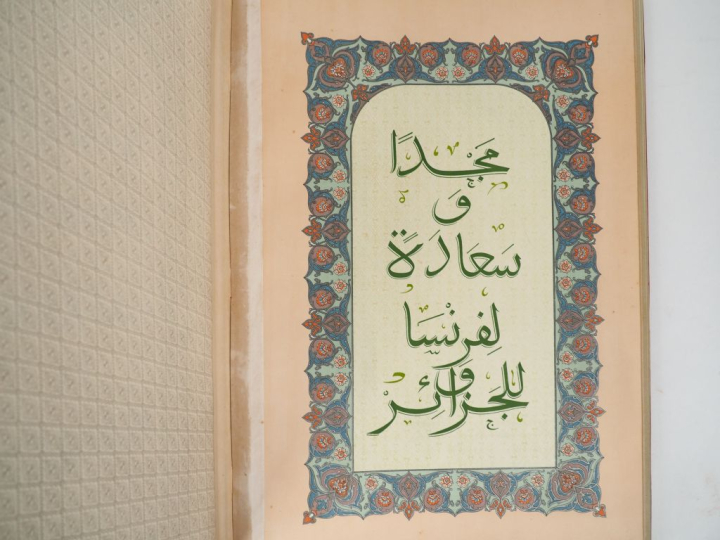 مَجْدًا
وَ
سَعَادَةً
لِفِرنْسَا
وَ
للجَزائِر